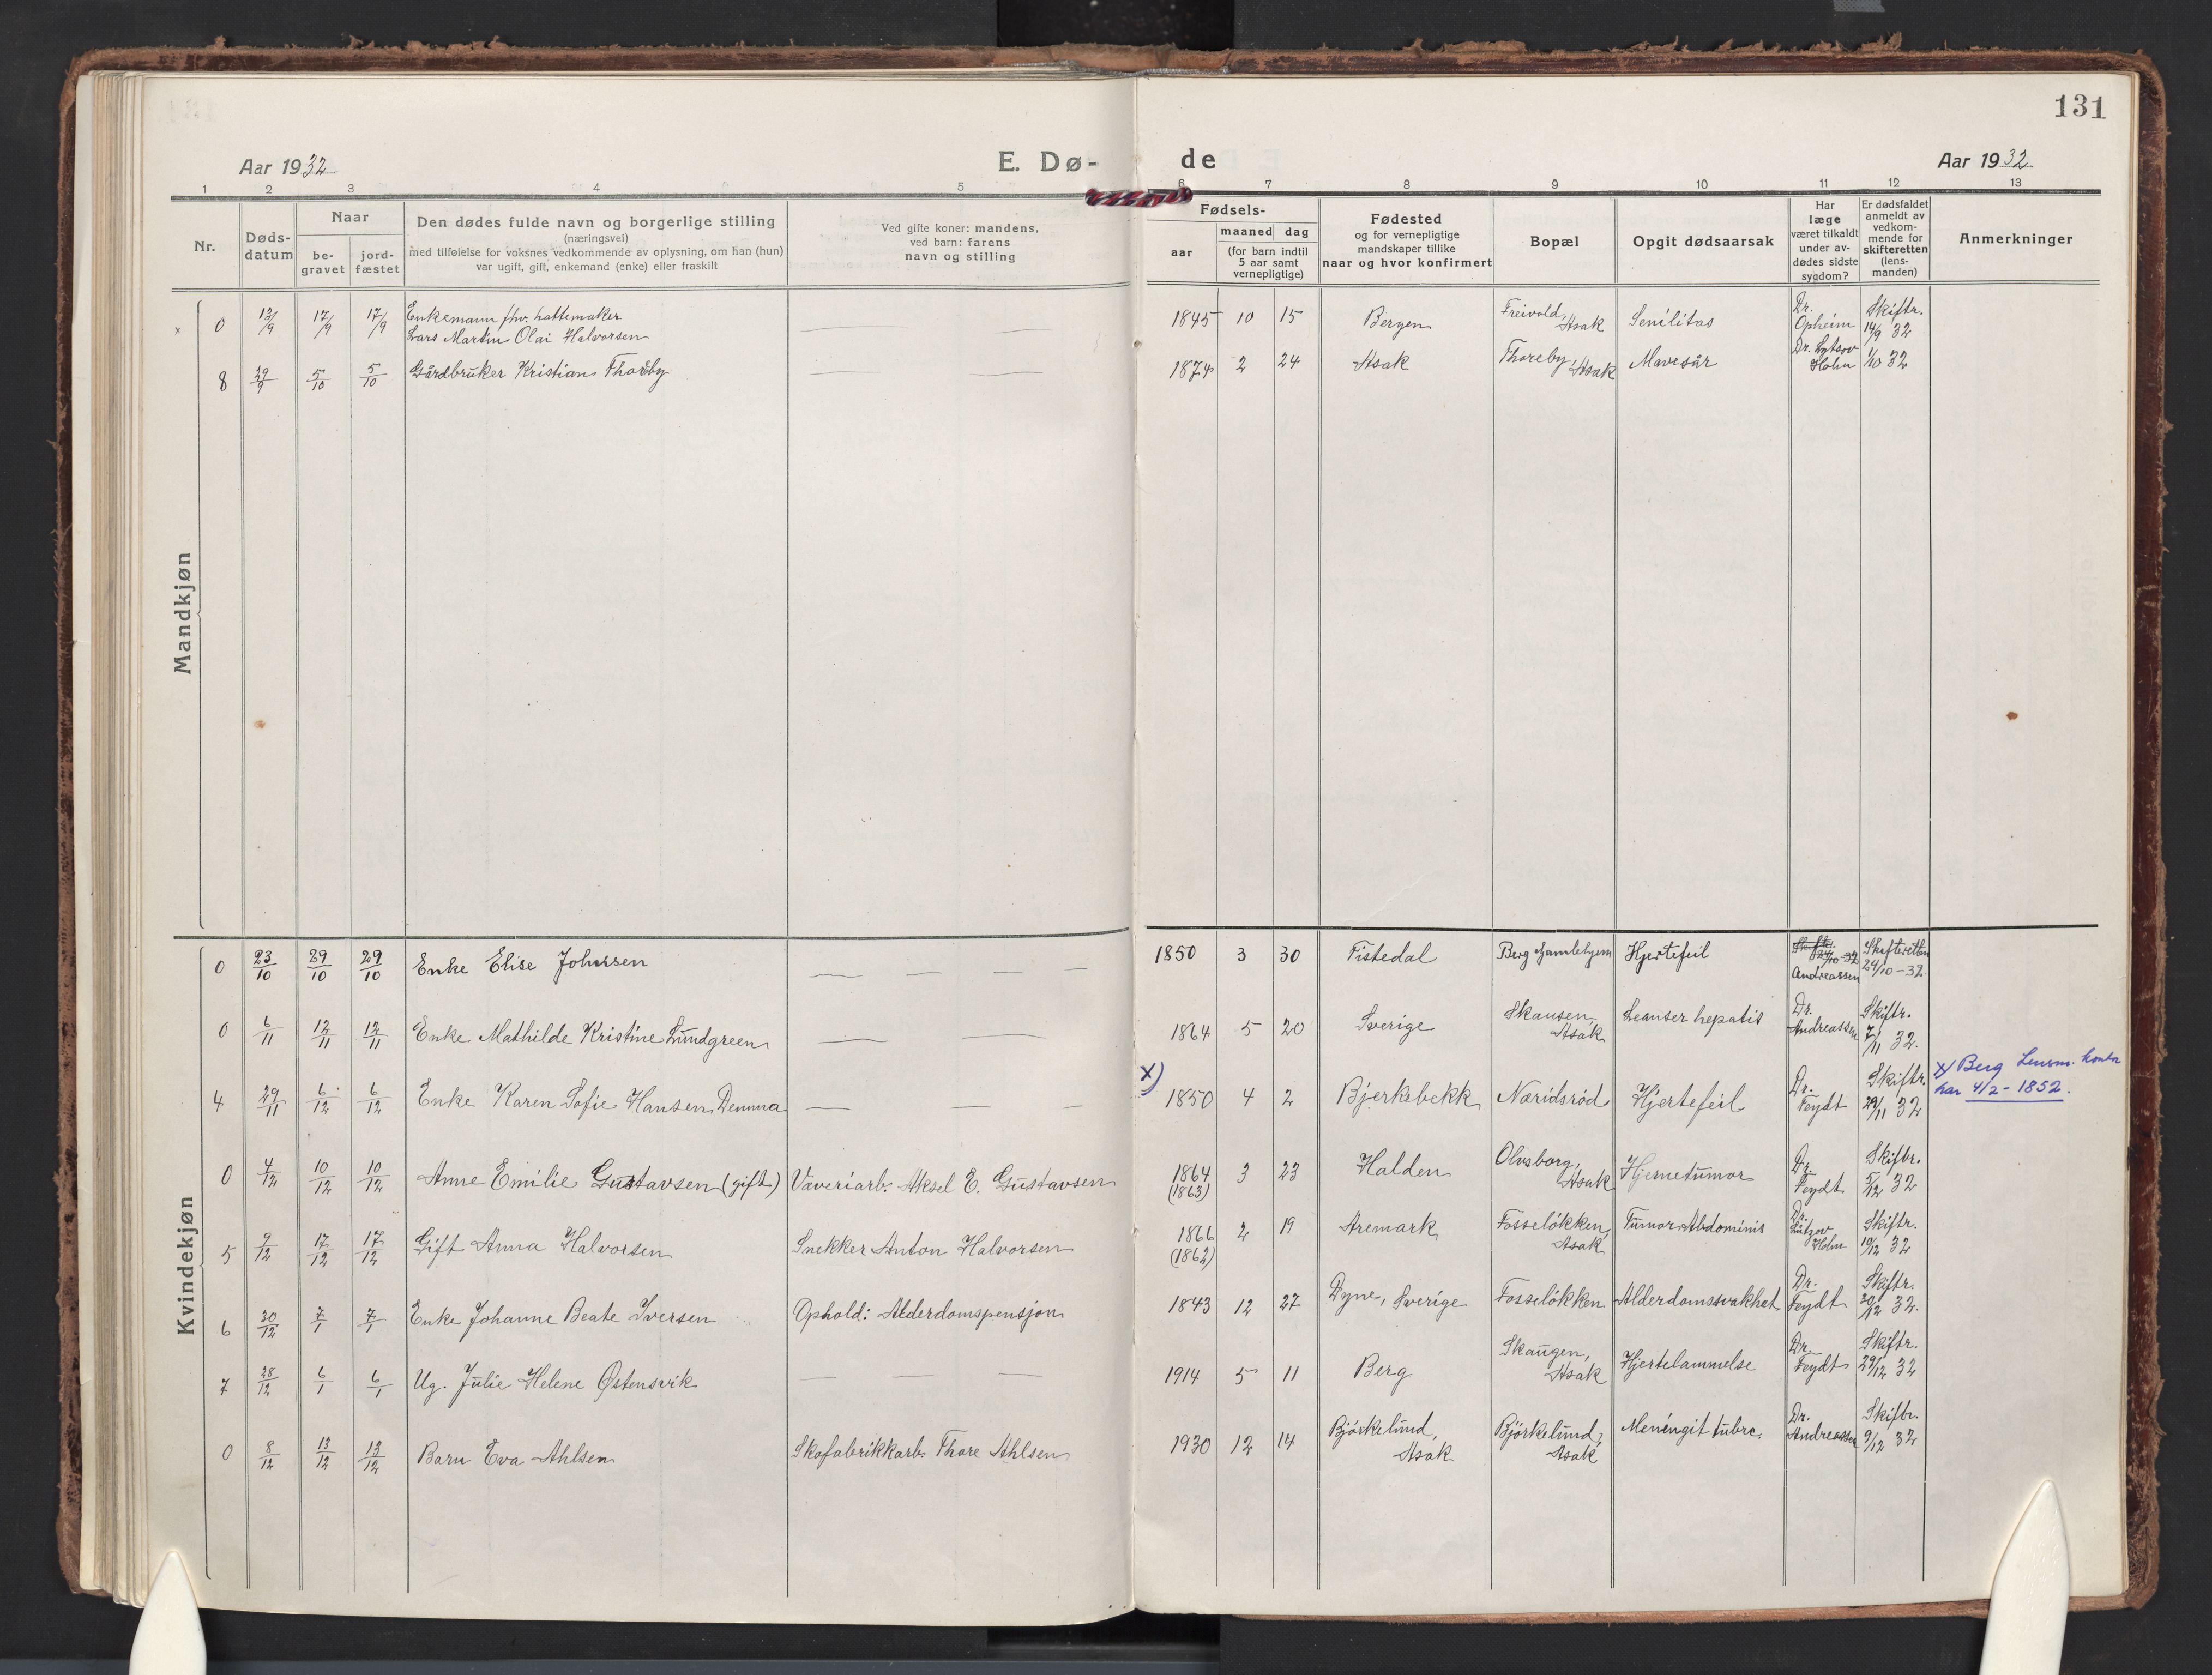 131
Aar 1932
E. Dø-
de
Aar 1932
1 2 3 4 5 6 7 8 9 10 11 12 13
Nr.
Døds-
datum
Naar
be-
gravet
jord-
fæstet
Den dødes fulde navn og borgerlige stilling
(næringsvei)
med tilføielse for voksnes vedkommende av oplysning, om han (hun)
var ugift, gift, enkemand (enke) eller fraskilt
Ved gifte koner: mandens,
ved barn: farens
navn og stilling
Fødsels-
aar
maaned dag
(for barn indtil
5 aar samt
vernepligtige)
Fødested
og for vernepligtige
mandskaper tillike
naar og hvor konfirmert
Bopæl
Opgit dødsaarsak
Har
læge
været tilkaldt
under av-
dødes sidste
sygdom?
Er dødsfaldet
anmeldt av
vedkom-
mende for
skifteretten
(lens-
manden)
Anmerkninger
Mandkjøn
x 0 13/9 17/9 17/9 Enkemann fhv. hattemaker
Lars Martin Olai Halvorsen
1845 10 15 Bergen Freivold, Asak Senilitas Dr. Opheim Skiftr. 14/9 32
8 29/9 5/10 5/10 Gårdbruker Kristian Thorsby
1874 2 24 Asak Thoreby, Asak Mavesår Dr. Holm 1/10 32
Kvindekjøn
0 23/10 29/10 29/10 Enke Elise Johnsen
1850 3 30 Tistedal Berg Gamlehjem Hjertefeil Andreassen Skifteretten 24/10-32
0 6/11 12/11 12/11 Enke Mathilde Kristine Lundgreen
1864 5 20 Sverige Skausen, Asak hepatis Dr. Andreassen Skiftr. 7/11 32.
4 29/11 6/12 6/12 Enke Karen Sofie Hansen Demma
x) 1850 4 2 Bjerkebekk Næridsrød Hjertefeil Dr. Feydt Skiftr. 29/11 32
x) Berg Lensm. kontor
har 4/2-1852.
0 4/12 10/12 10/12 Anne Emilie Gustavsen (gift) Væveriarb. Aksel E. Gustavsen
1864 (1863) 3 23 Halden Olvsborg, Asak Hjernetumor Dr. Feydt Skiftr. 5/12 32
5 9/12 17/12 17/12 Gift Anna Halvorsen Snekker Anton Halvorsen
1866 (1862) 2 19 Aremark Fosseløkken, Asak Tumor Abdominis Dr. Lützov Holm Skiftr. 10/12 32
6 30/12 7/1 7/1 Enke Johanne Beate Iversen Ophold: Alderdomspensjon
1843 12 27 Dyne, Sverige Fosseløkken Alderdomssvakhet Dr. Feydt Skiftr. 30/12 32.
7 28/12 6/1 6/1 Ug. Julie Helene Østensvik
1914 5 11 Berg Skaugen, Asak Hjertelammelse Dr. Feydt Skiftr. 29/12 32
0 8/12 13/12 13/12 Barn Eva Ahlsen Skofabrikkarb. Thore Ahlsen
1930 12 14 Bjørkelund, Asak Bjørkelund, Asak Meningit tubrc. Dr. Andreassen Skiftr. 9/12 32